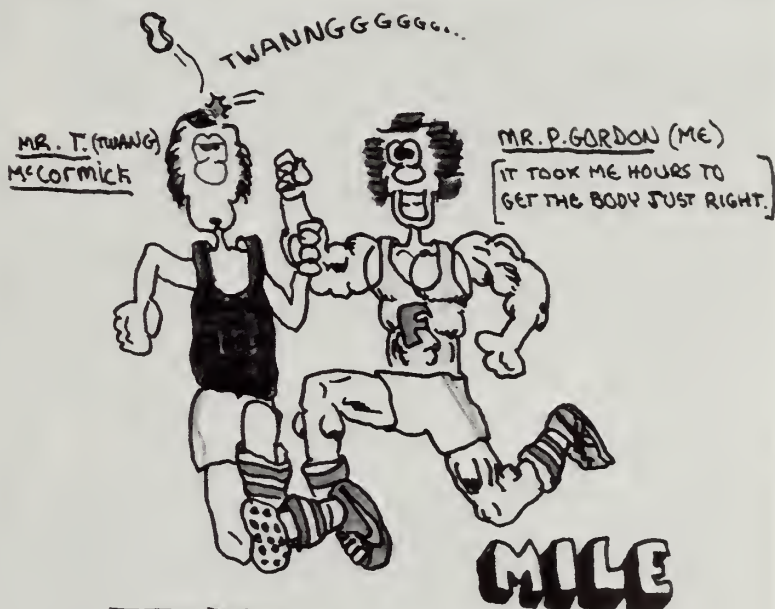 TWANNGGGGGG...
MR. T. (TWANG)
McCormick
MR. P. GORDON (ME)
[IT TOOK ME HOURS TO
GET THE BODY JUST RIGHT.]
MILE